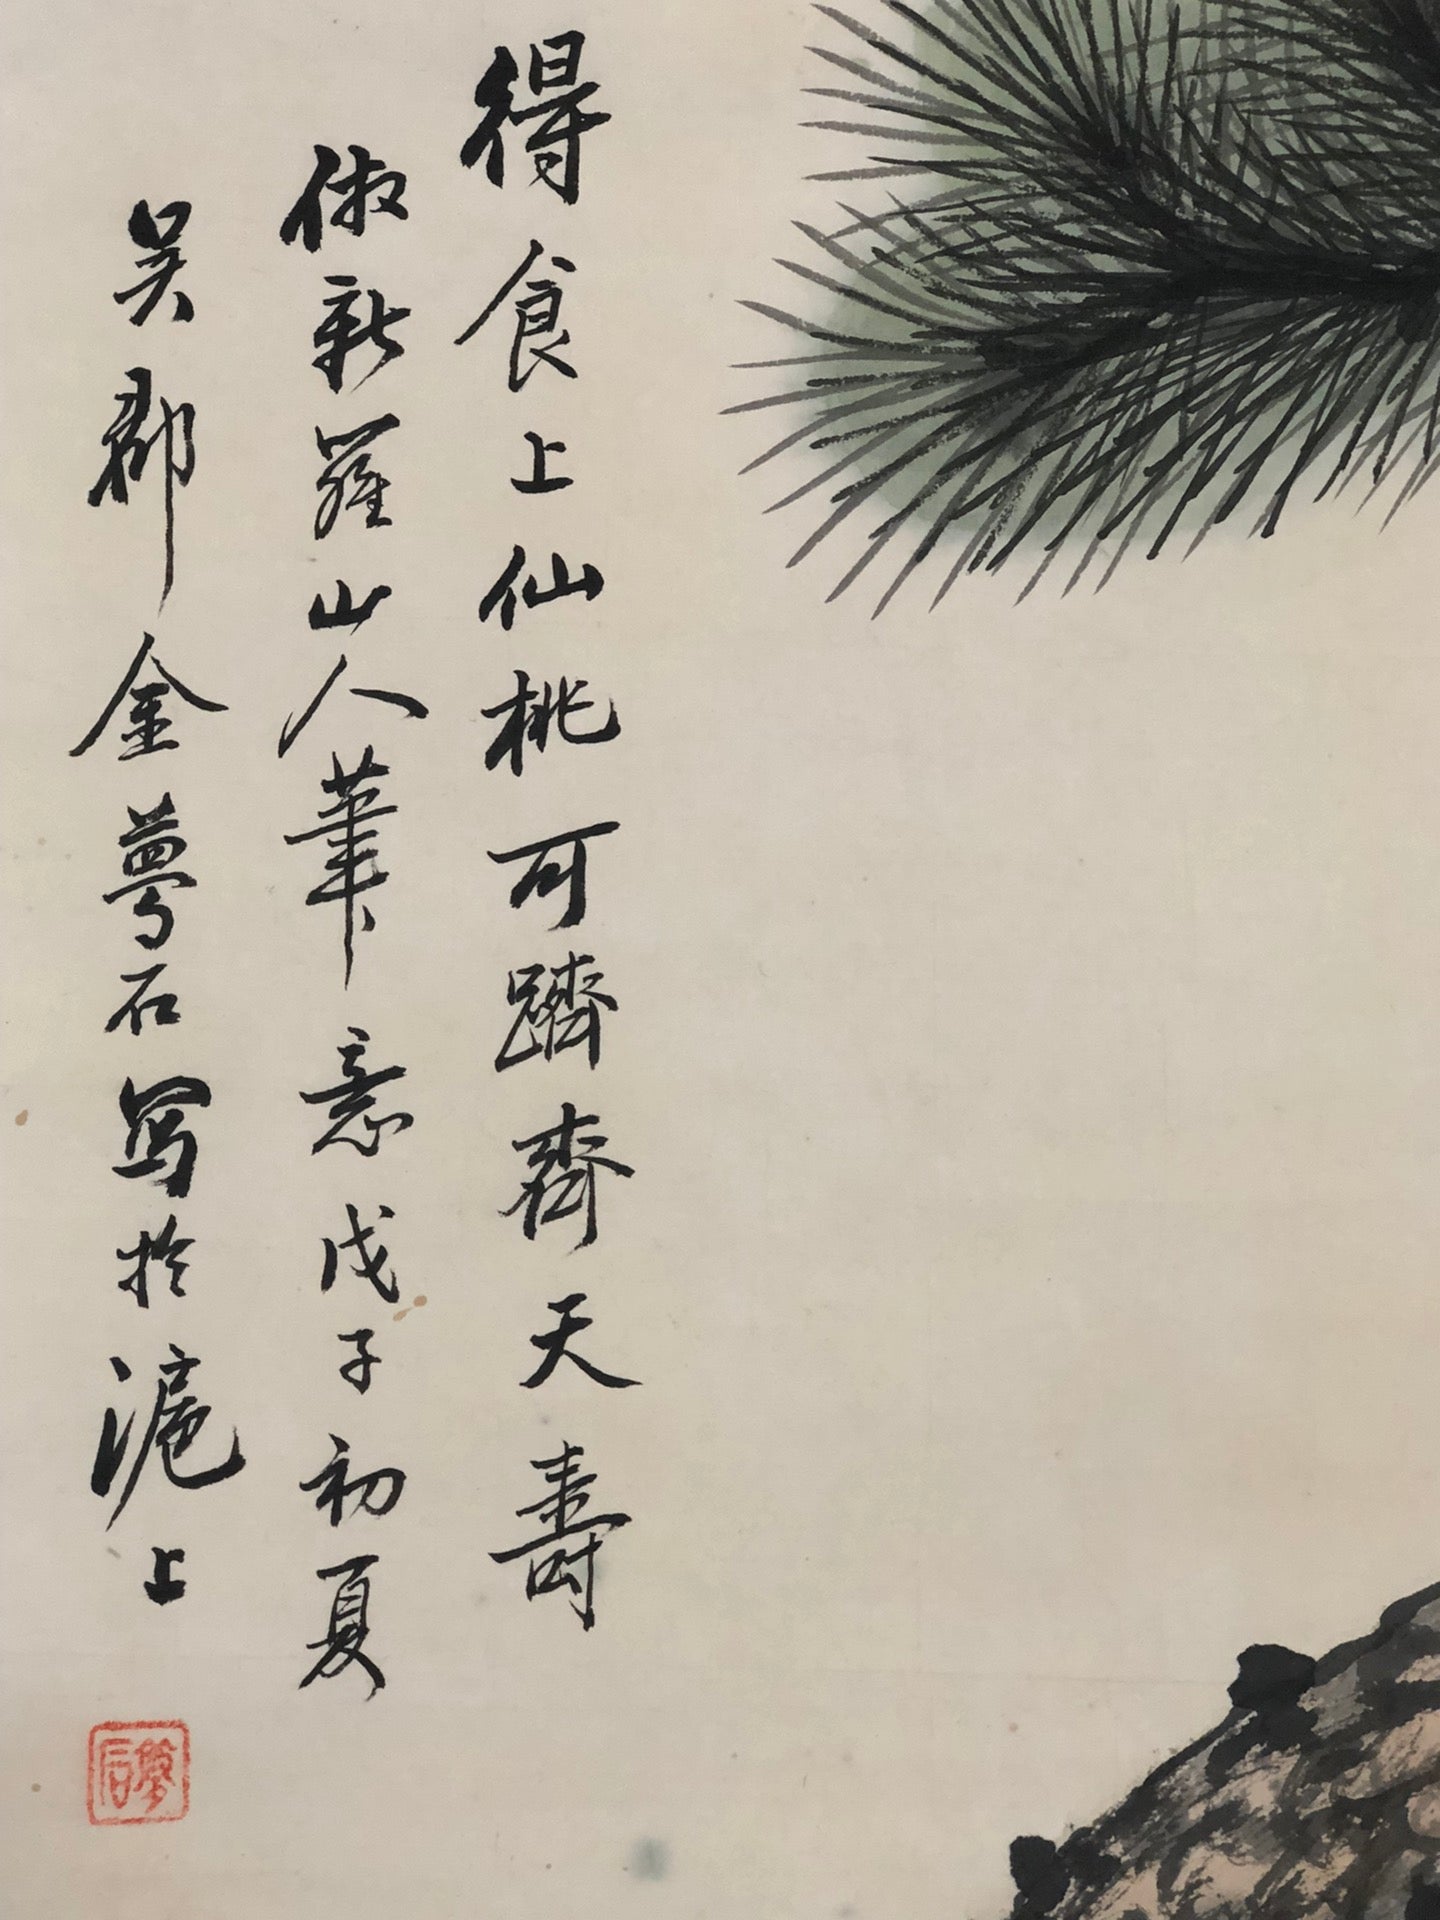 得食上仙桃可躋齊天壽
倣新羅山人筆意戊子初夏
吳郡金夢石寫於滬上
夢石